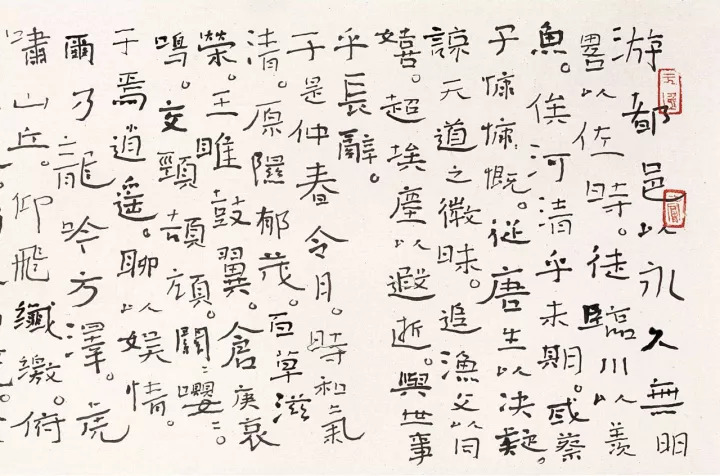 游都邑以永久無明
畧以佐時。徒臨川以羨
魚。俟河清乎未期。感蔡
子慷慷慨。從唐生以決疑。
諒天道之微昧。追漁父以同
嬉。超埃塵以遐逝。與世事
乎長辭。
于是仲春令月。時和氣
清。原隰郁茂。百草滋
榮。王雎鼓翼。倉庚哀
鳴。交頸頡頏。關〻嚶〻。
于焉逍遥。聊以娱情。
爾乃龍吟方澤。虎
嘯山丘。仰飛纖繳。俯